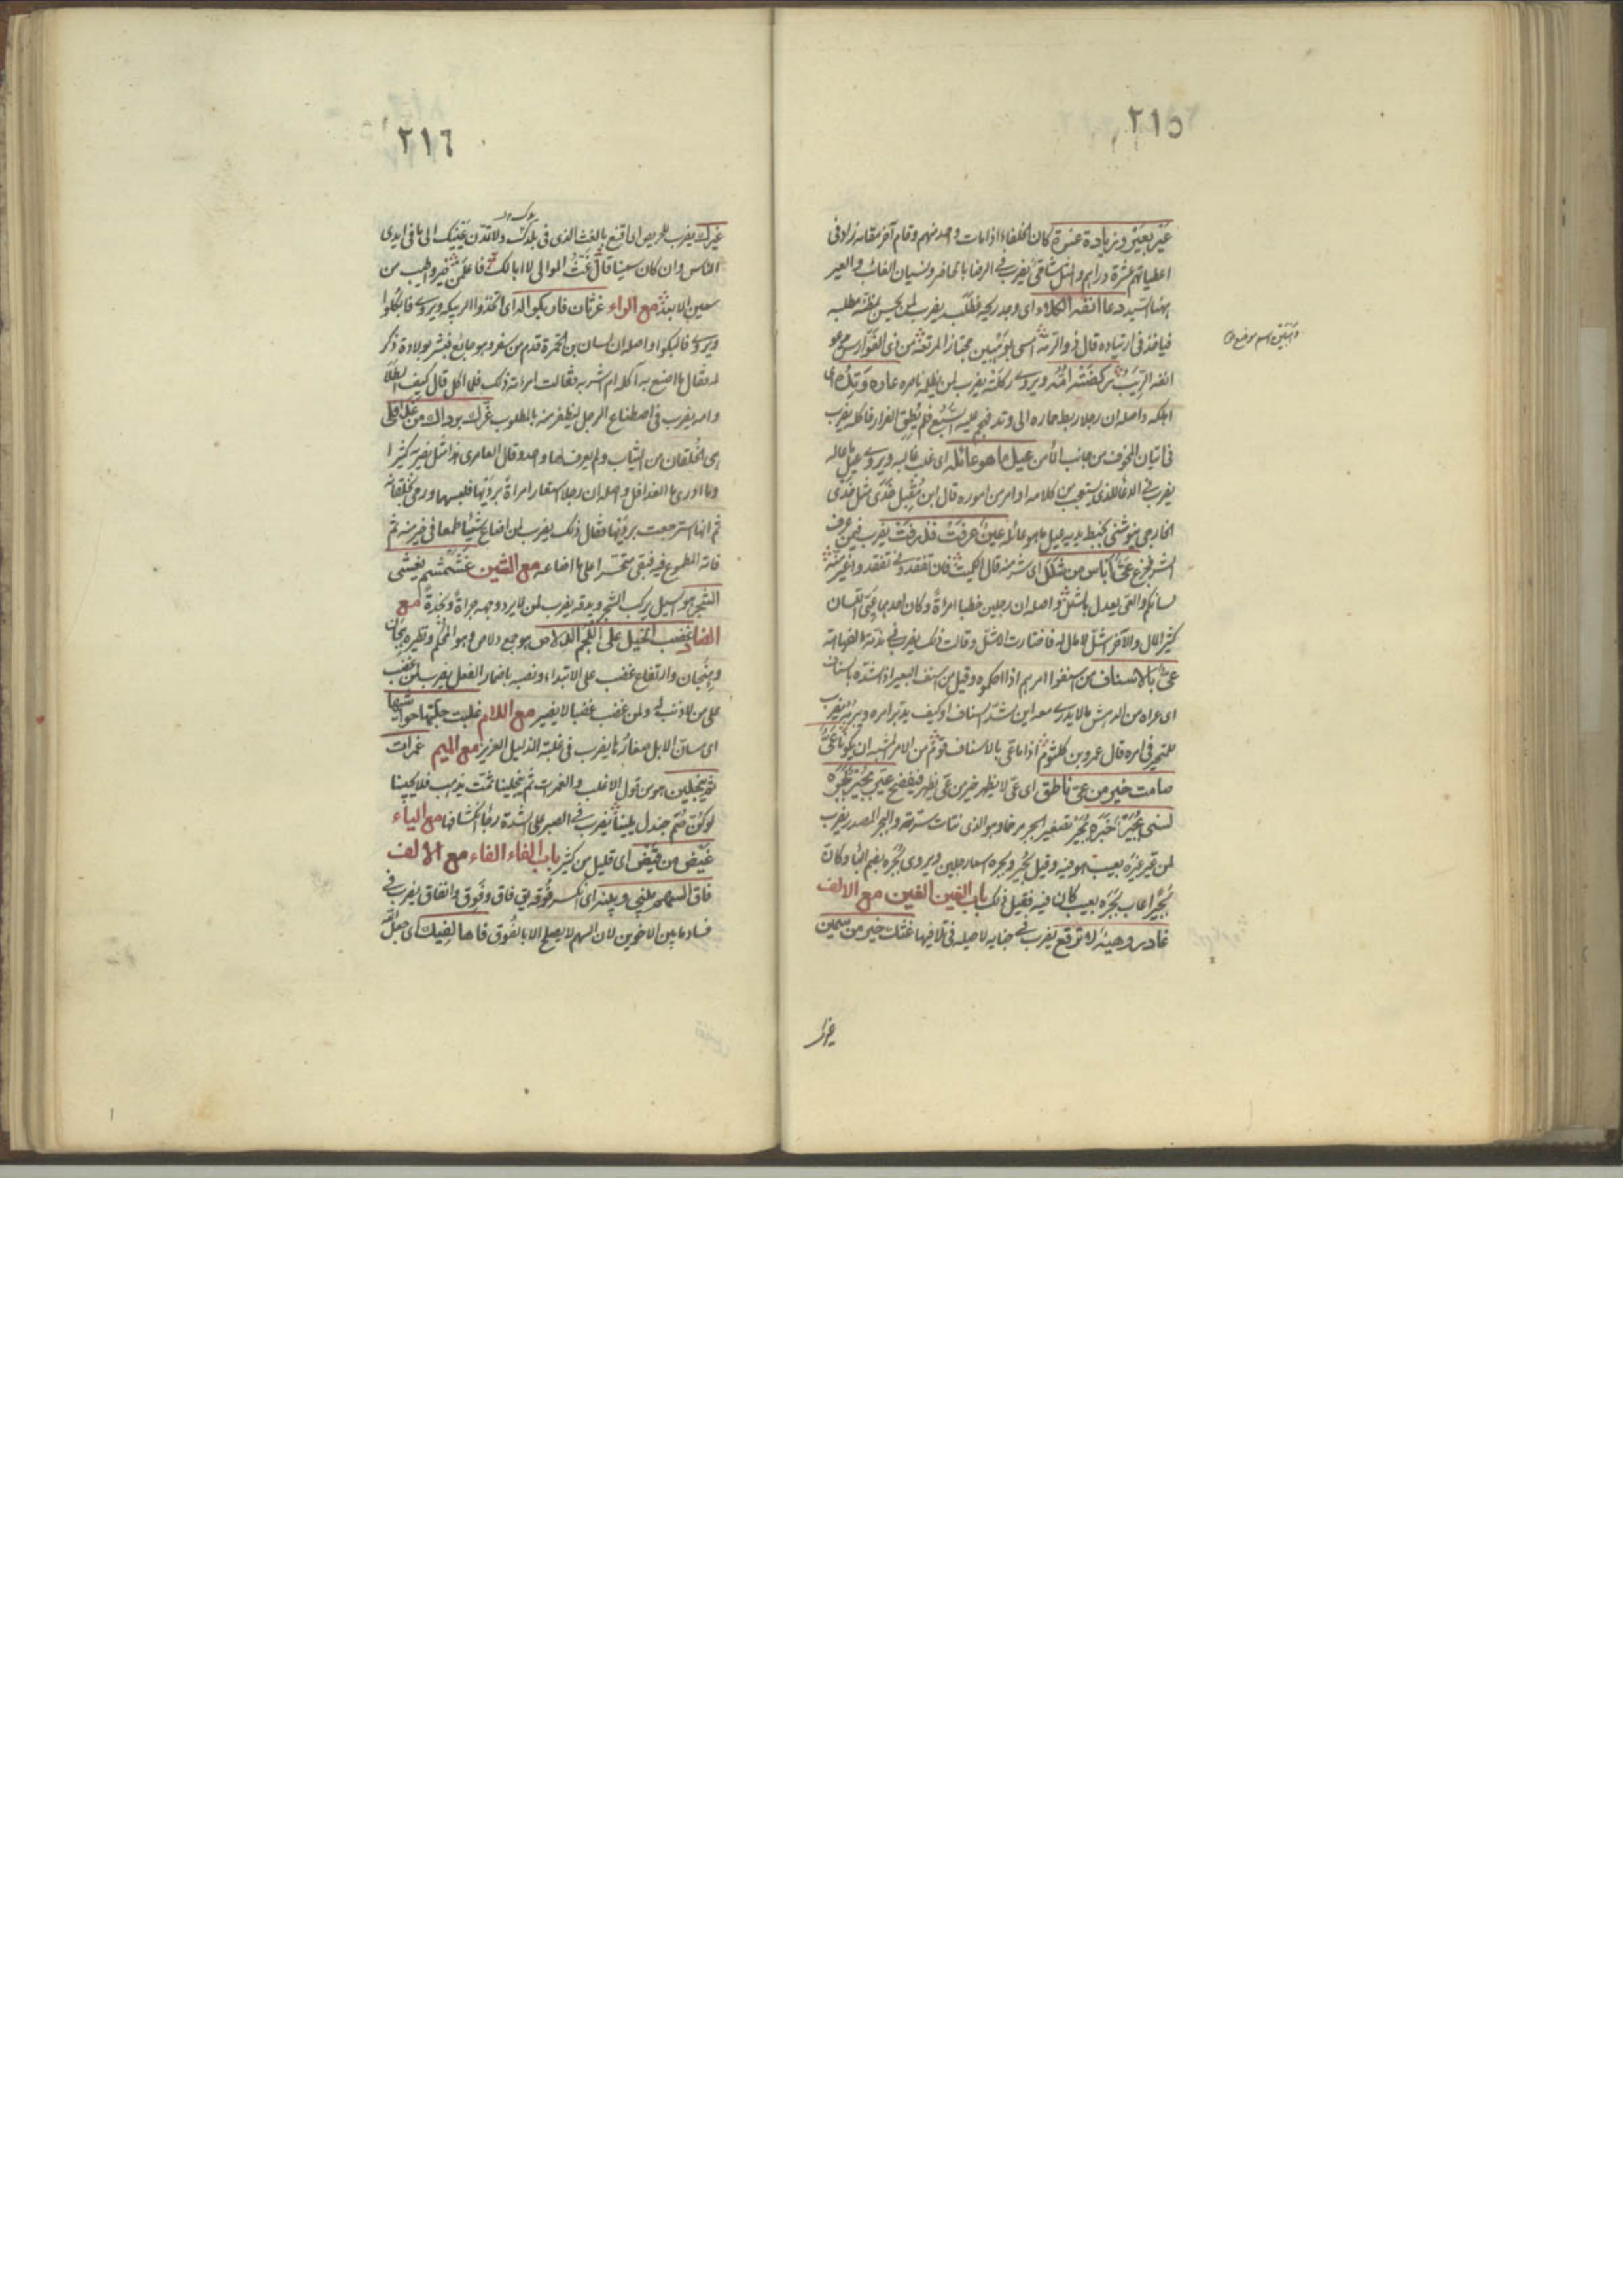 ٢١٥
عير بعير وزيادة عشرة كان الخلفاء اذا مات واحد منهم وقام آخر مقامه زاد فى
اعطياتهم عشرة دراهم والمثل شامىّ يضرب فى الرضا بالحاضر ونسيان الغائب والعير
ههنا السيد دعا انفه الكلاء اى وجد ريحه فطلب يضرب لمن يحس بمظنة مطلبه
فيأخذ فى ارتياده قال ذو الرمة امسى بوهبين مجتازا لمرتعه من ذى الفوارس يدعو
وهبين اسم موضع
انفه الربب عير ركضته امه ويروى ركلته يضرب لمن يظلمه ناصره عاده وتده اى
اهلكه واصله ان رجلا ربط حماره الى وتد فهجم عليه السبع فلم يطق الفرار فاكله يضرب
فى اتيان المخوف من جانب المأمن عيل ما هو عائله اى غلب غالبه ويروى عيل ما عاله
يضرب فى الدعاء للذى يتعجب من كلامه او امر من اموره قال ابن مقبل خدى مثل خدى
الخارجى ينوشنى بخبط يديه عيل ما هو عائله عين عرفت فذرفت يضرب فيمن عرف
الشر فجزع عىّ اباس من شلل اى شر منه قال الكميت فان تفقدونى تفقدوا غير منة
لسانكم والعى يعدل بالشلل واصله ان رجلين خطبا امرأة وكان احدهما عيى اللسان
كثير المال والآخر اشل لا مال له فاختارت الاشل وقالت ذلك يضرب فى
عىّ بالاسناف من اسنفوا امرهم اذا احكموه وقيل من اسنف البعير اذا شده بالسناف
اى عراه من الدهش ما لا يدرى معه اين شد السناف او كيف يدبر امره ويبرمه يضرب
للمتحير فى امره قال عمرو بن كلثوم اذا ما عىّ بالاسناف قوم من الامر المشبه ان يكونا عىّ
صامت خير من عىّ ناطق اى عىّ لا يظهر خير من عىّ يظهر فيفضح عير بجير بجره
نسى بجير خبره بجير تصغير ابجر مرخما وهو الذى نتأت سرته والبجر المصدر يضرب
لمن عير غيره بعيب هو فيه وقيل بجير وبجره اسما رجلين ويروى بجره بضم الباء وكان
بجيرا عاب بجره بعيب كان فيه فقيل ذلك باب الغين الغين مع الالف
غادر وهية لا ترقع يضرب فى جناية لا حيلة فى تلافيها غثك خير من سمين
غيرك
٢١٦
غيرك يضرب للحريص اى اقنع بالغث الذى فى يدك ولا تمدن عينيك الى ما فى ايدى
الناس وان كان سمينا قال غث الموالى لا ابالك فاعلمن خير واطيب من
سمين الابعد مع الراء غرثان فاربكوا له اى اتخذوا الربيكة ويروى فابكلوا
ويروى فالبكوا واصله ان لسان بن الحمرة قدم من سفر وهو جائع فبشر بولادة ذكر
له فقال ما اصنع به آكله ام اشربه فقالت امرأته ذلك فلما اكل قال كيف الطلا
وامه يضرب فى اصطناع الرجل ليظفر منه بالمطلوب غرك برداك من غدافلى
هى الخلقان من الثياب ولم يعرف لها واحد وقال العامرى هذا مثل نضربه كثيرا
وما ادرى ما الغدافل واصله ان رجلا استعار امرأة برديها فلبسهما ورمى بخلقانه
ثم انها استرجعت برديها فقال ذلك يضرب لمن اضاع شيئا طمعا فى خير منه ثم
فاته المطموع فيه فبقى متحسرا على ما اضاعه مع الشين غشمشم يغشى
الشجر هو السيل يركب الشجر ويدقه يضرب لمن لا يرد وجهه جرأة ونجدة مع
الضاد غضب الخيل على اللجم الدلاص هو جمع دلاص وهو المحكم ونظيره هجان
وهجان وارتفاع غضب على الابتداء ونصبه باضمار الفعل يضرب لمن غضب
على من لا ذنب له ولمن غضب غضبا لا يضير مع اللام غلبت جلتها حواشيها
اى مسان الابل صغارها يضرب فى غلبة الذليل العزيز مع الميم غمرات
ثم ينجلين هو من قول الاغلب والغمرات ثم ينجلينا ثمت يذهب فلا يجينا
لوكن ضم جندل يلينا يضرب فى الصبر على الشدة رجاء انكشافها مع الياء
غيض من فيض اى قليل من كثير باب الفاء الفاء مع الالف
فاق السهم بينى وبينه اى انكسر فوقه يق فاق وفوق وانفاق يضرب فى
فساد ما بين الاخوين لان السهم لا يصلح الا بالفوق فاها لفيك اى جعل الله